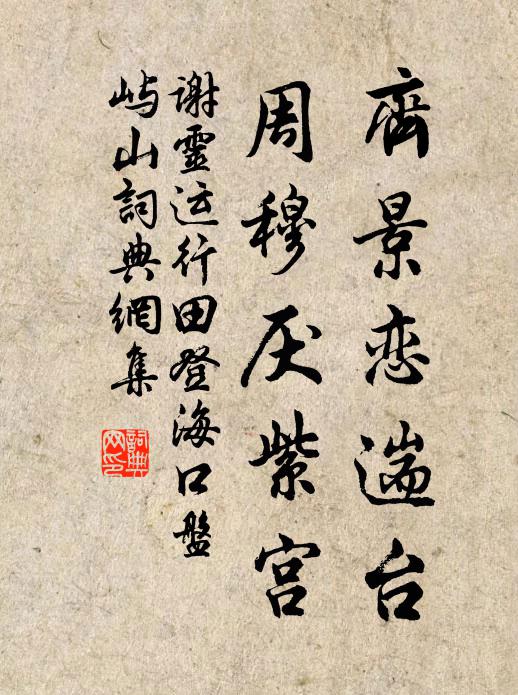 齊景恋遄台
周穆厌紫宫
謝靈运行田登海口盤
屿山詞典網集
詞典
网印